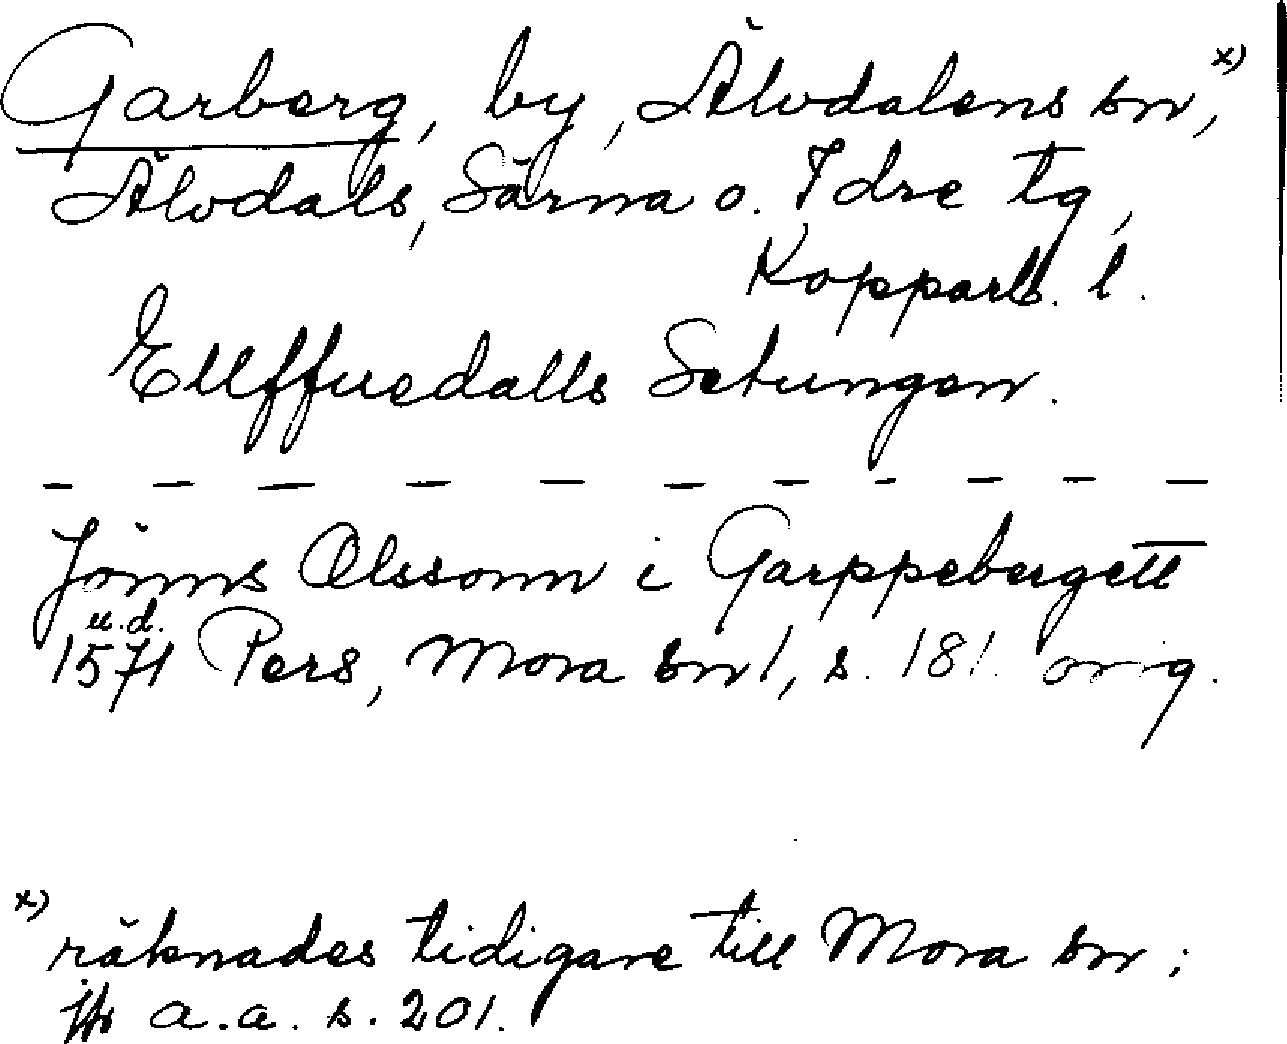 Garberg, by, Älvdalens sn, x)
Älvdals, Särna o. Idre tg,
Kopparb. l.
Ellffuedalls Setungen.
— — — — — — — — — — —
Jönns Olssonn i Garppebergett
u.d.
1571 Pers, Mora sn 1, s. 181. orig.
x) räknades tidigare till Mora sn;
jfr a.a. s. 201.